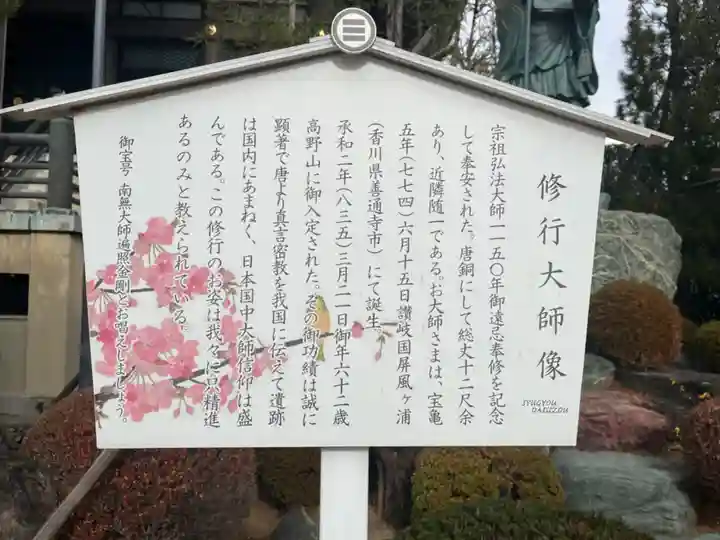 修行大師像
JYUGYOU
DAIZZOU
宗祖弘法大師一一五〇年御遠忌奉修を記念
して奉安された。唐銅にして総丈十二尺余
あり、近隣随一である。お大師さまは、宝亀
五年(七七四)六月十五日讃岐国屏風ヶ浦
(香川県善通寺市)にて誕生、
承和二年(八三五)三月二一日御年六十二歳
高野山に御入定された。その御功績は誠に
顕著で唐より真言密教を我国に伝えて遺跡
は国内にあまねく、日本国中大師信仰は盛
んである。この修行のお姿は我々に只精進
あるのみと教えられている。
御宝号 南無大師遍照金剛とお唱えしましょう。